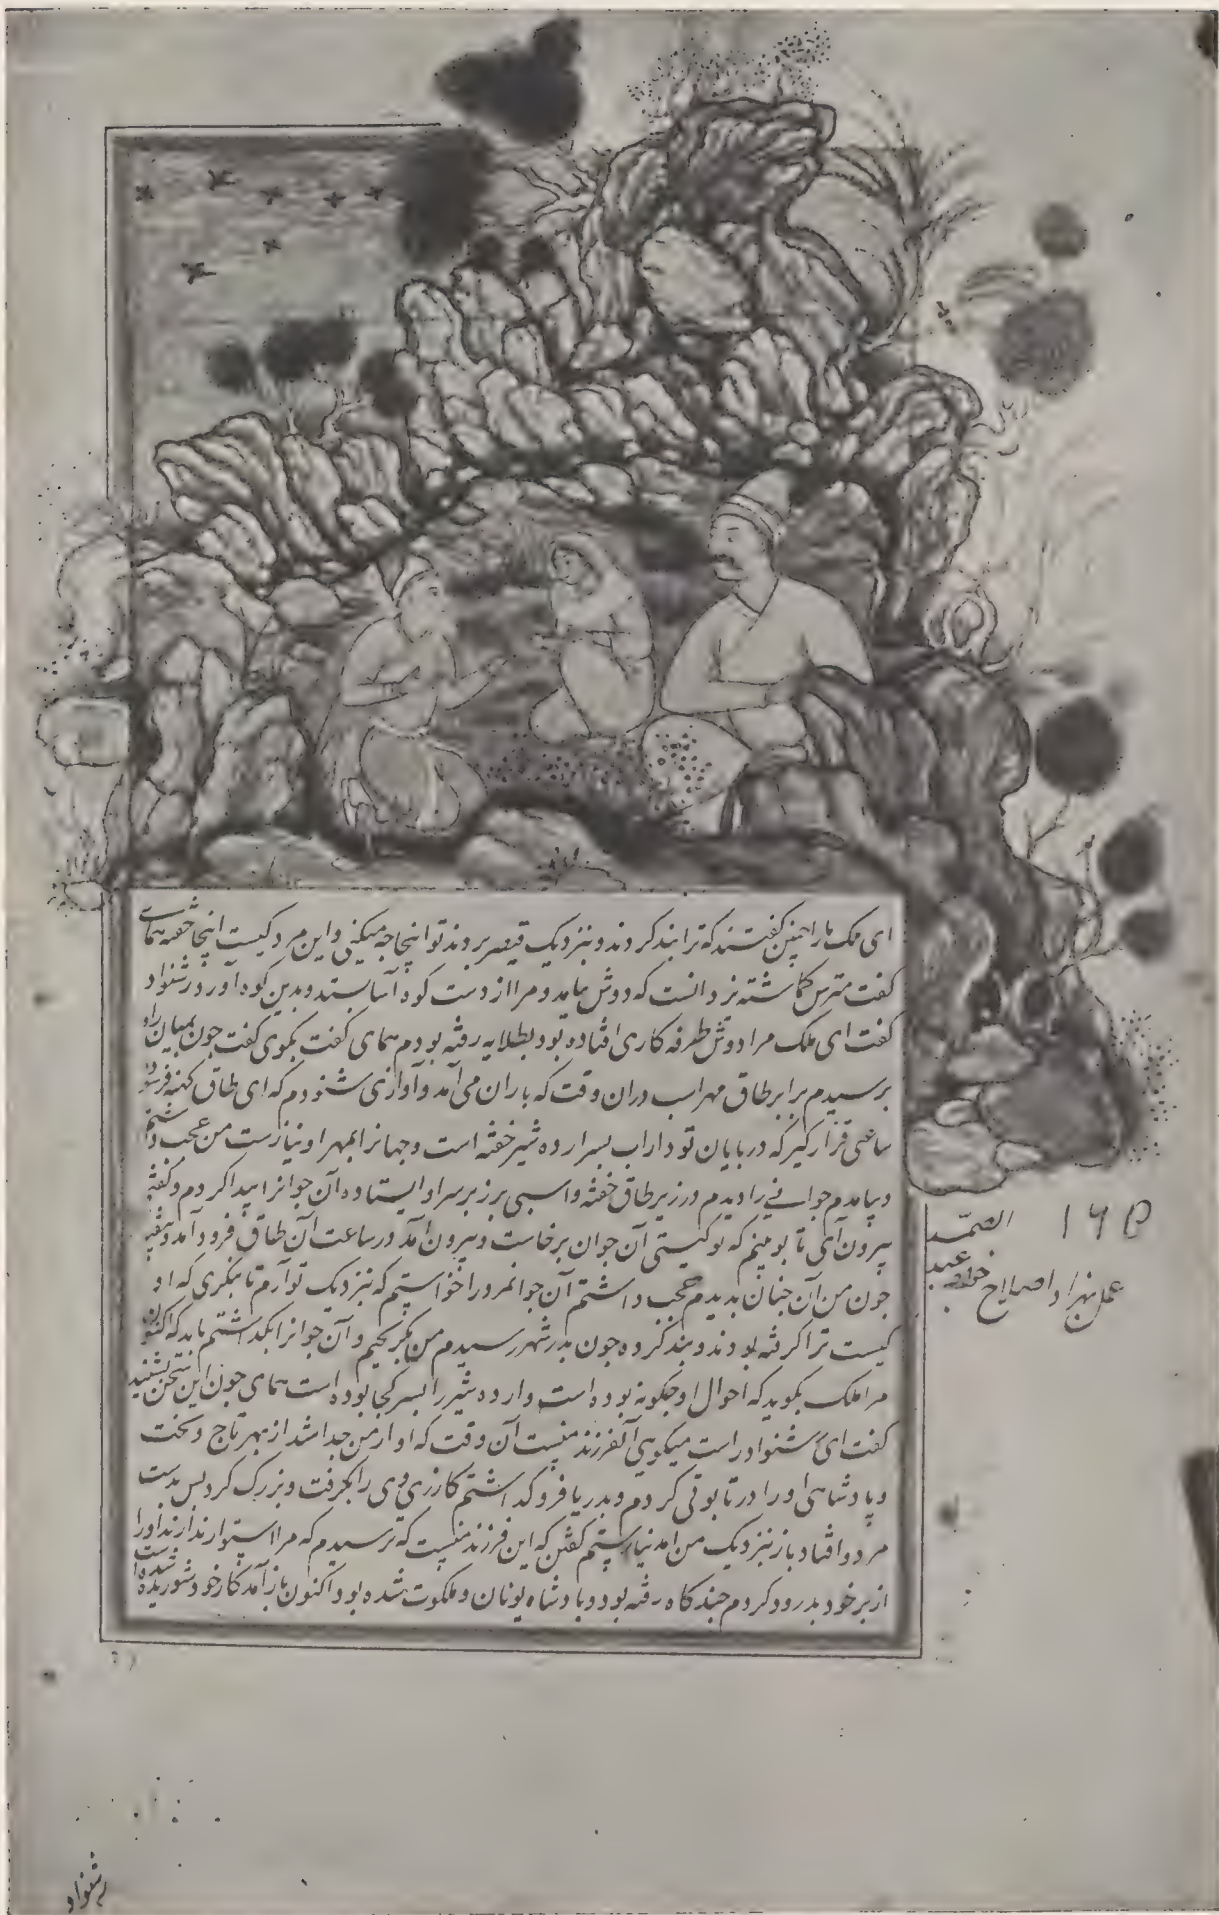 ای ملک ما را چنین گفتند که ترا بند کردند و بنزدیک قیصر بردند تو اینجا چه میکنی و این مرد کیست اینجا خفته همای
گفت مترس گماشته یزدانست که دوش بیامد و مرا از دست کوه آسا بستد و بدین کوه آورد رشنواد
گفت ای ملک مرا دوش طرفه کاری افتاده بود بطلایه رفته بودم همای گفت بگوی گفت چون بمیان راه
برسیدم برابر طاق مهراسب دران وقت که باران می‌آمد و آوازی شنودم که ای طاق کهنه فرسوده
ساعتی قرار گیر که در پایان تو داراب پسر ارده شیر خفته است و جهانرا بمهر او نیازست من عجب داشتم
و بیامدم جوانی را دیدم در زیر طاق خفته و اسبی بر زبر سر او ایستاده آن جوانرا بیدار کردم و گفتم
بیرون آی تا بوبینم که تو کیستی آن جوان برخاست و بیرون آمد در ساعت آن طاق فرود آمد و بیفتاد
جون من آن جنان بدیدم عجب داشتم آن جوانمرد را خواستم که بنزدیک تو آرم تا بنگری که او
کیست ترا گرفته بودند و بند کرده جون بدر شهر رسیدم من بگریختم و آن جوانرا بگذاشتم باید که اکنون
مرا ملک بگوید که احوال او جگونه بوده است و ارده شیر را پسر کجا بوده است همای جون این سخن بشنید
گفت ای رشنواد راست میگویی آنفرزند منست آن وقت که او از من جدا شد از بهر تاج و تخت
و پادشاهی او را در تابوتی کردم و بدریا فروگذاشتم گازری وی را بگرفت و بزرگ کرد پس بدست
مردو افتاد باز بنزدیک من آمد نیارستم گفتن که این فرزند منست که ترسیدم که مرا استوار ندارند او را
از بر خود بدرود کردم جندگاه رفته بود و پادشاه یونان و ملکوت شده بود اکنون باز آمد کار خود شوریده
۱۶۵
عمل بهزاد اصلاح خواجه عبد الصمد
رشنواد